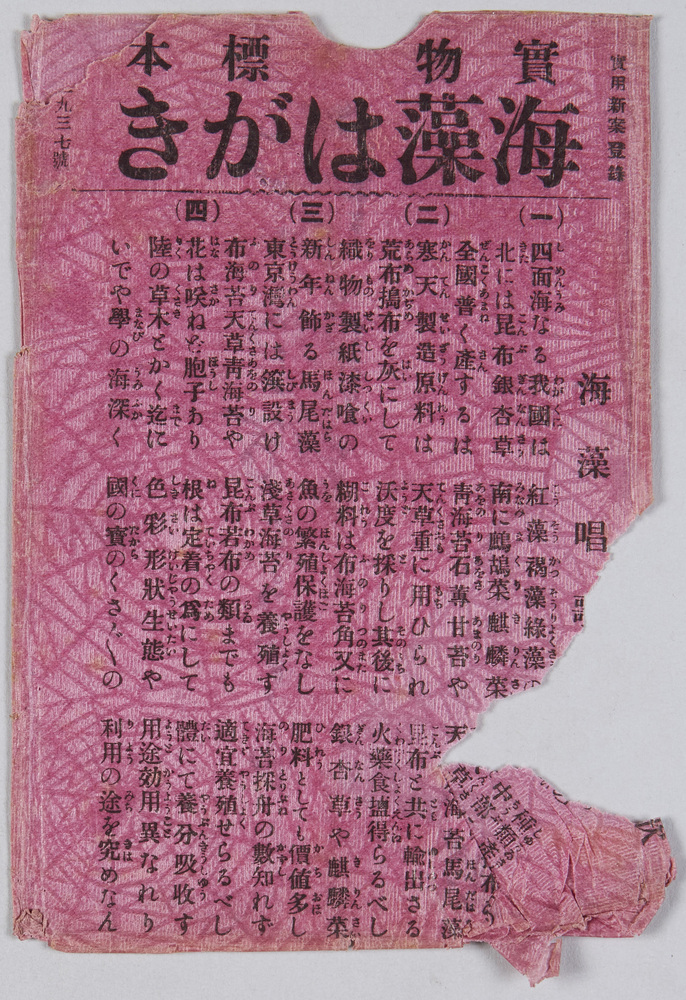 實用新案登錄
實物標本
海藻はがき
九三七號
海藻唱
(一)
四面海なる我國は 紅藻褐藻綠藻の
北には昆布銀杏草 南に鷓鴣菜麒麟菜
全國普く產するは 靑海苔石蓴甘苔や 天 海苔馬尾藻
(二)
寒天製造原料は 天草重に用ひられ 昆布と共に輸出さる
荒布搗布を灰にして 沃度を採りし其後に 火藥食塩得らるべし
織物製紙漆喰の 糊料は布海苔角又に 銀杏草や麒麟菜
(三)
新年飾る馬尾藻 魚の繁殖保護をなし 肥料としても價値多し
東京灣には篊設け 淺草海苔を養殖す 海苔採舟の數知れず
布海苔天草靑海苔や 昆布若布の類までも 適宜養殖せらるべし
(四)
花は咲ねど胞子あり 根は定着の爲にして 體にて養分吸收す
陸の草木とかく迄に 色彩形狀生態や 用途効用異なれり
いでや學の海深く 國の寶のくさ〴〵の 利用の途を究めなん